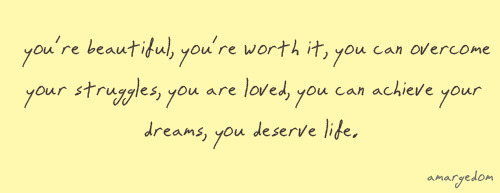 you're beautiful, you're worth it, you can overcome
your struggles, you are loved, you can achieve your
dreams, you deserve life.
amargedom